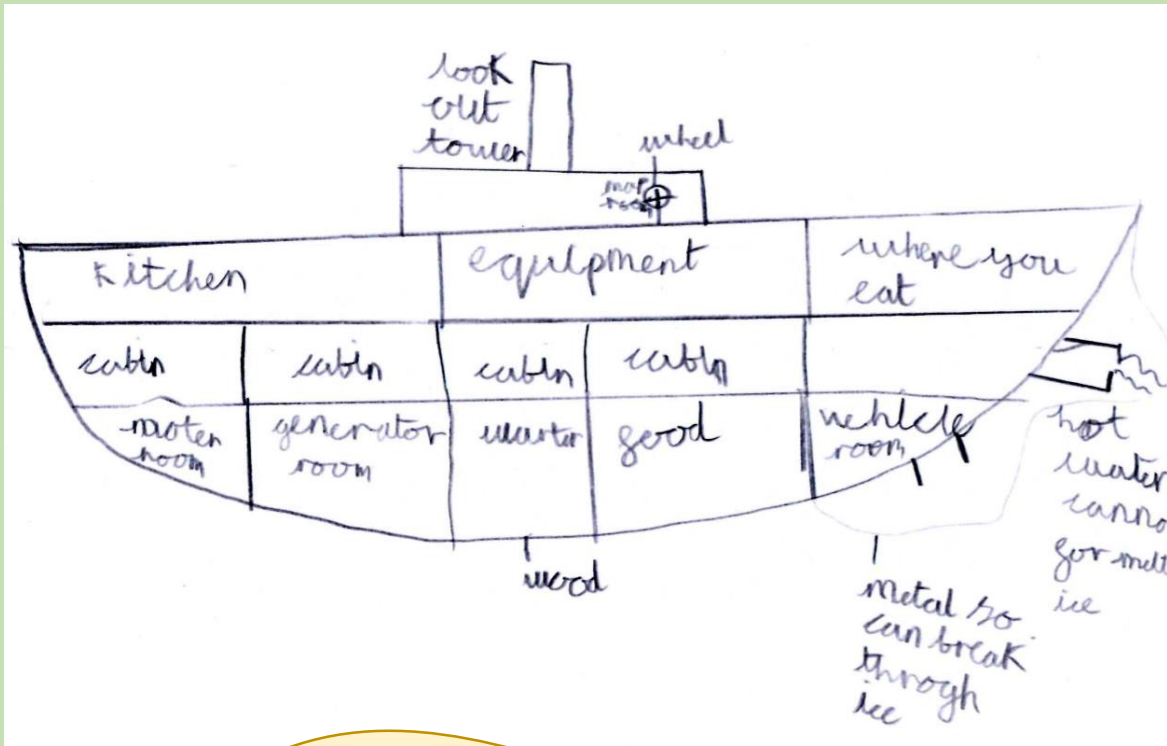 look
out
tower
wheel
map
room
kitchen
equipment
where you
eat
cabin
cabin
cabin
cabin
moter
room
generator
room
warter
food
vehicle
room
hot
water
canno
for melt
ice
wood
metal so
can break
throgh
ice